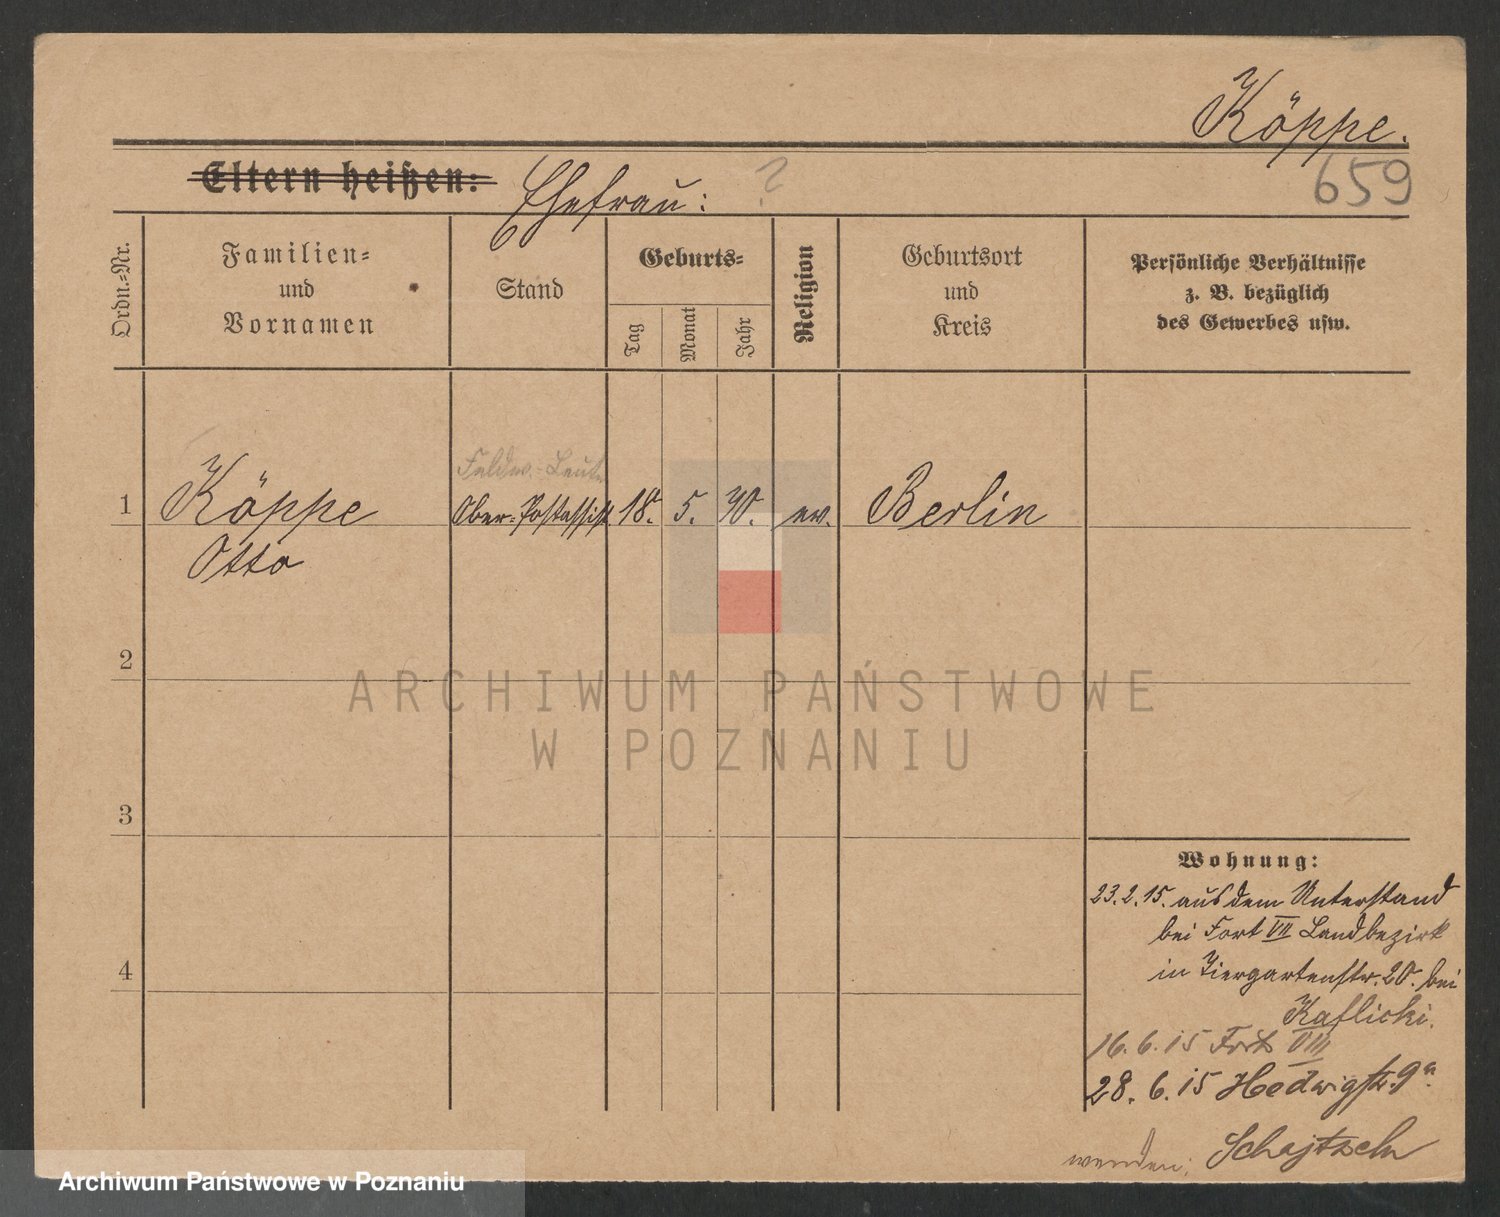 Köppe.
659
Eltern heißen: Ehefrau: ?
Ordn.-Nr.
Familien-
und
Vornamen
Stand
Geburts-
Tag
Monat
Jahr
Religion
Geburtsort
und
Kreis
Persönliche Verhältnisse
z. B. bezüglich
des Gewerbes usw.
Feldw.-Leutn.
1 Köppe Ober-Postassist. 18. 5. 70. ev. Berlin
Otto
2
3
4
Wohnung:
23.2.15. aus dem Unterstand
bei Fort VII Landbezirk
in Tiergartenstr. 20. bei
Kaflicki.
16.6.15 Fort VIII
28.6.15 Hedwigstr. 9a.
wenden:
ARCHIWUM PAŃSTWOWE
W POZNANIU
Archiwum Państwowe w Poznaniu